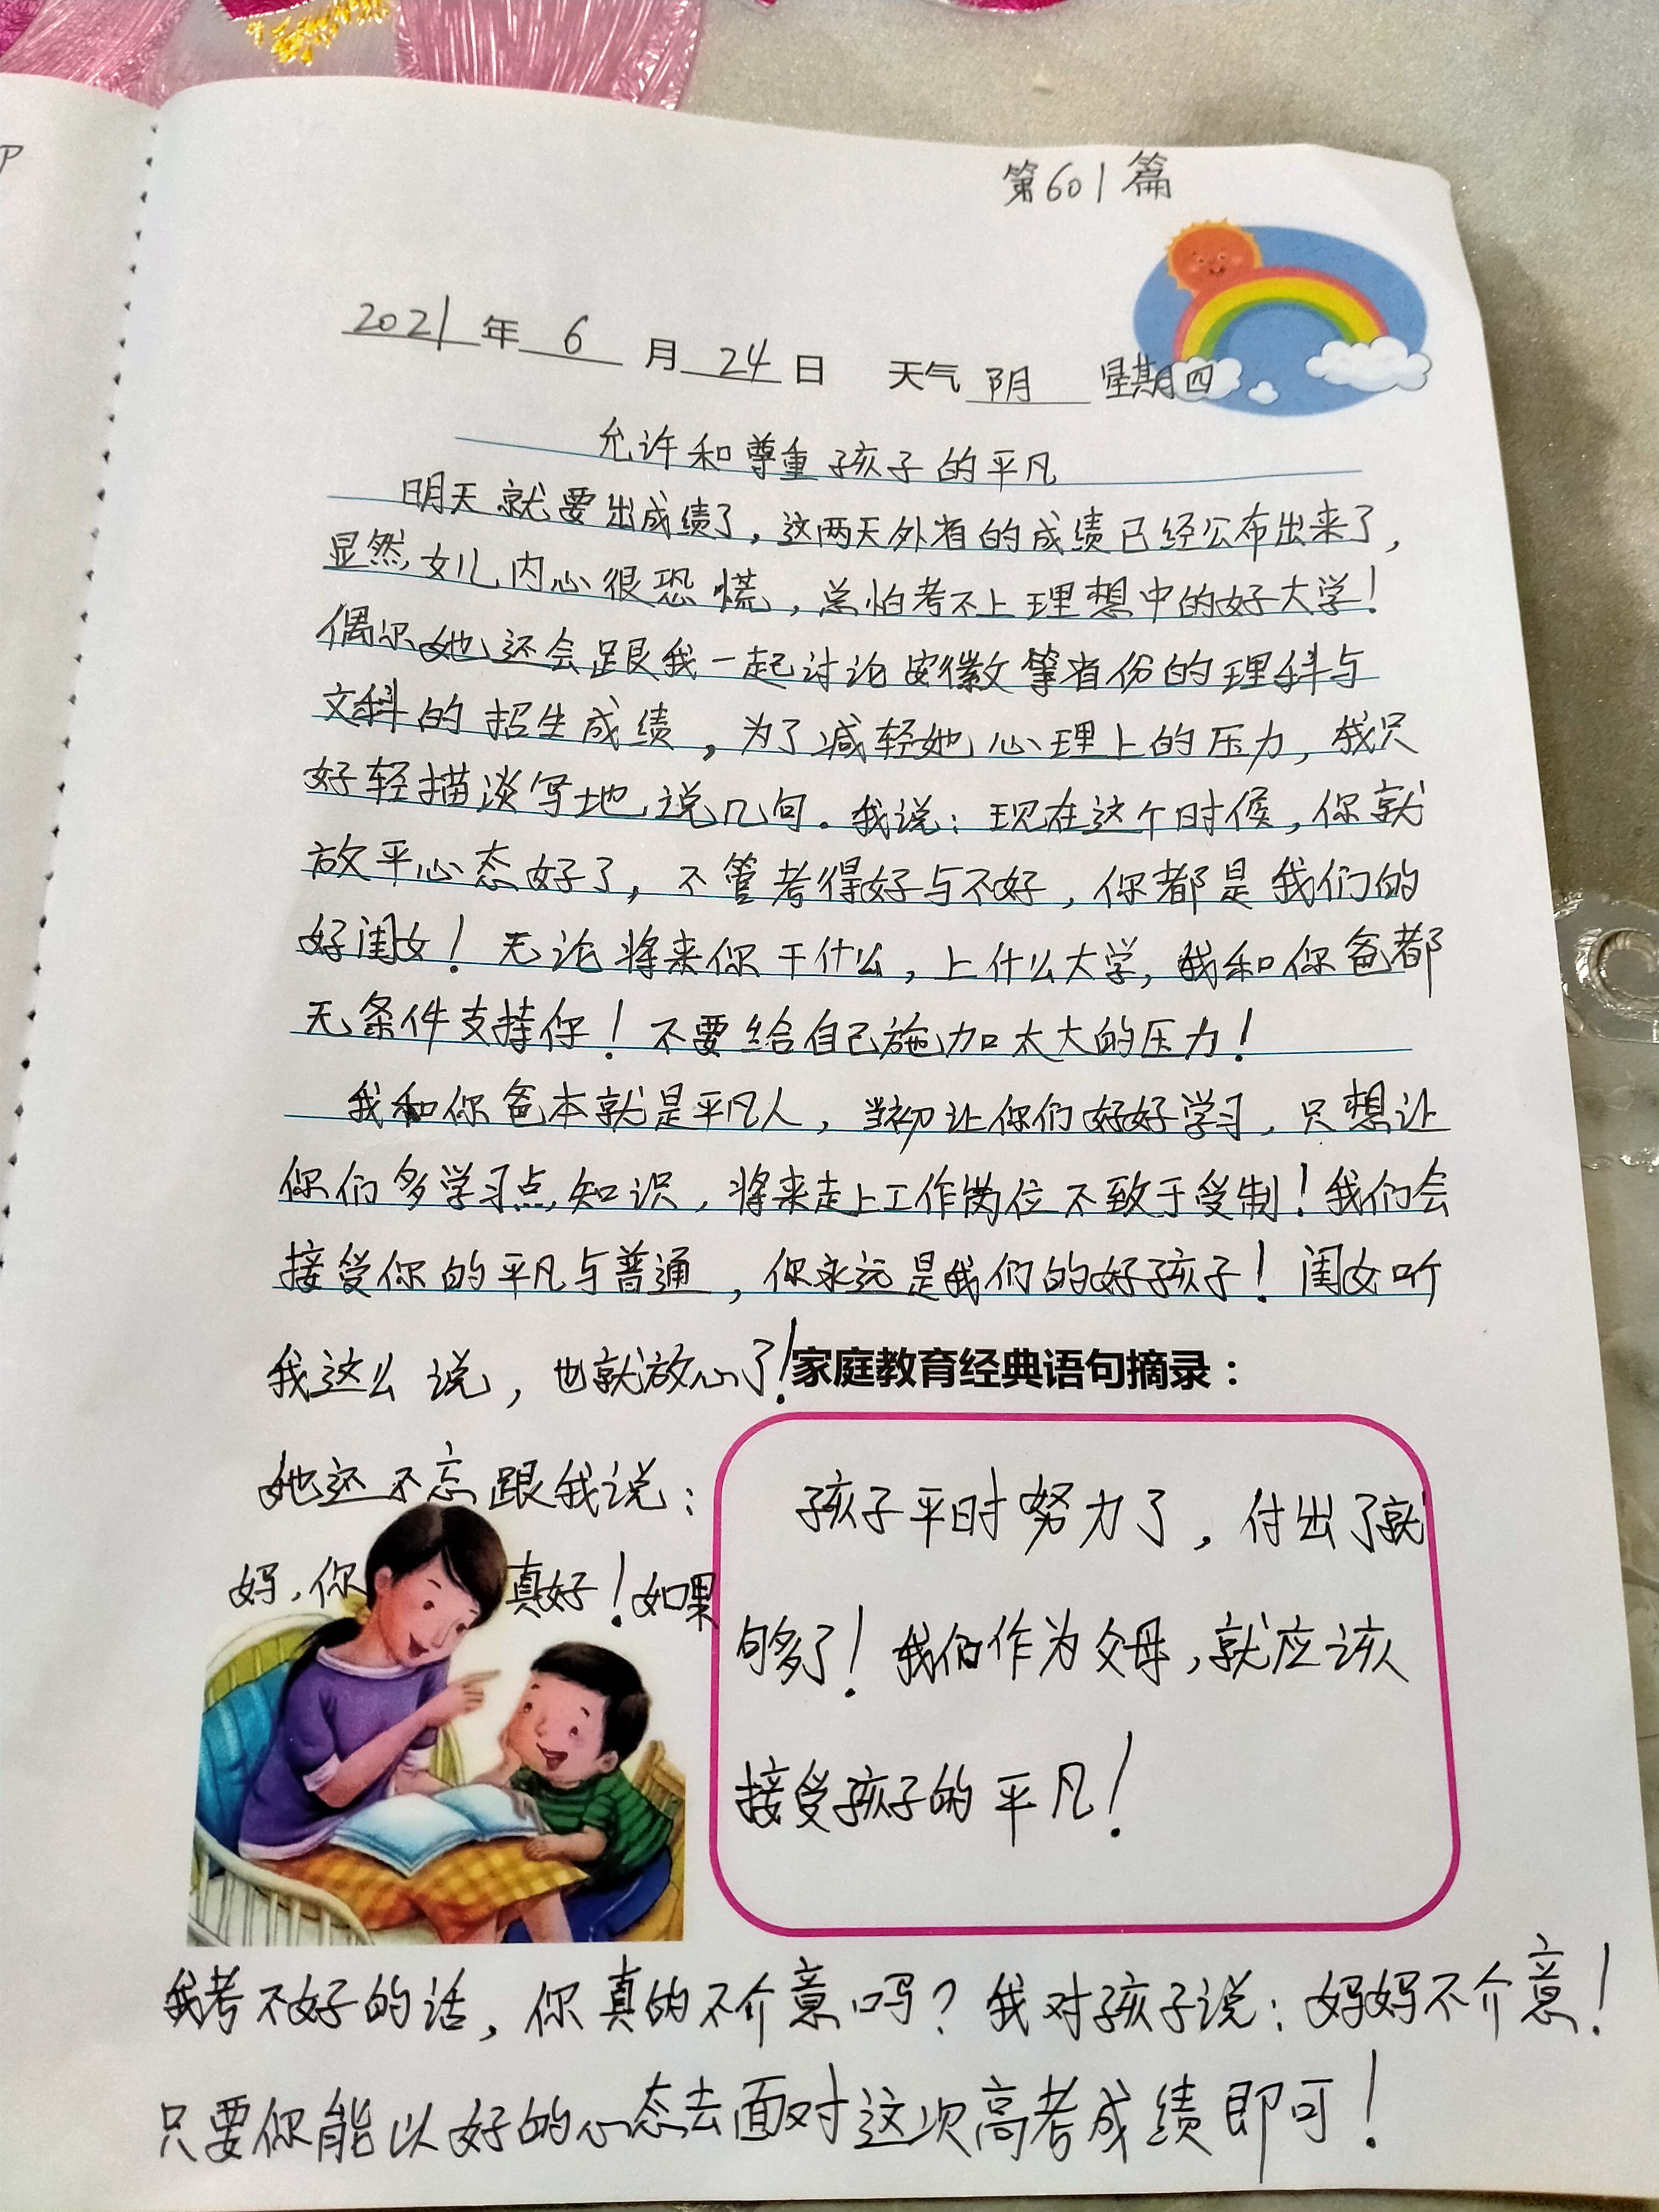 第601篇
2021年6月24日 天气阴 星期四
允许和尊重孩子的平凡
明天就要出成绩了，这两天外省的成绩已经公布出来了，
显然，女儿内心很恐慌，总怕考不上理想中的好大学！
偶尔她还会跟我一起讨论安徽等省份的理科与
文科的招生成绩，为了减轻她心理上的压力，我只
好轻描淡写地说几句。我说：现在这个时候，你就
放平心态好了，不管考得好与不好，你都是我们的
好闺女！无论将来你干什么，上什么大学，我和你爸都
无条件支持你！不要给自己施加太大的压力！
我和你爸本就是平凡人，当初让你们好好学习，只想让
你们多学习点知识，将来走上工作岗位不致于受制！我们会
接受你的平凡与普通，你永远是我们的好孩子！闺女听
我这么说，也就放心了！
她还不忘跟我说：
妈，你真好！如果
家庭教育经典语句摘录：
孩子平时努力了，付出了就
够多了！我们作为父母，就应该
接受孩子的平凡！
我考不好的话，你真的不介意吗？我对孩子说：妈妈不介意！
只要你能以好的心态去面对这次高考成绩即可！